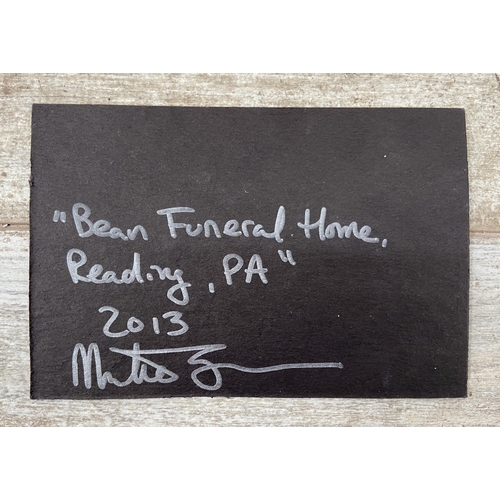 "Bean Funeral Home,
Reading, PA"
2013